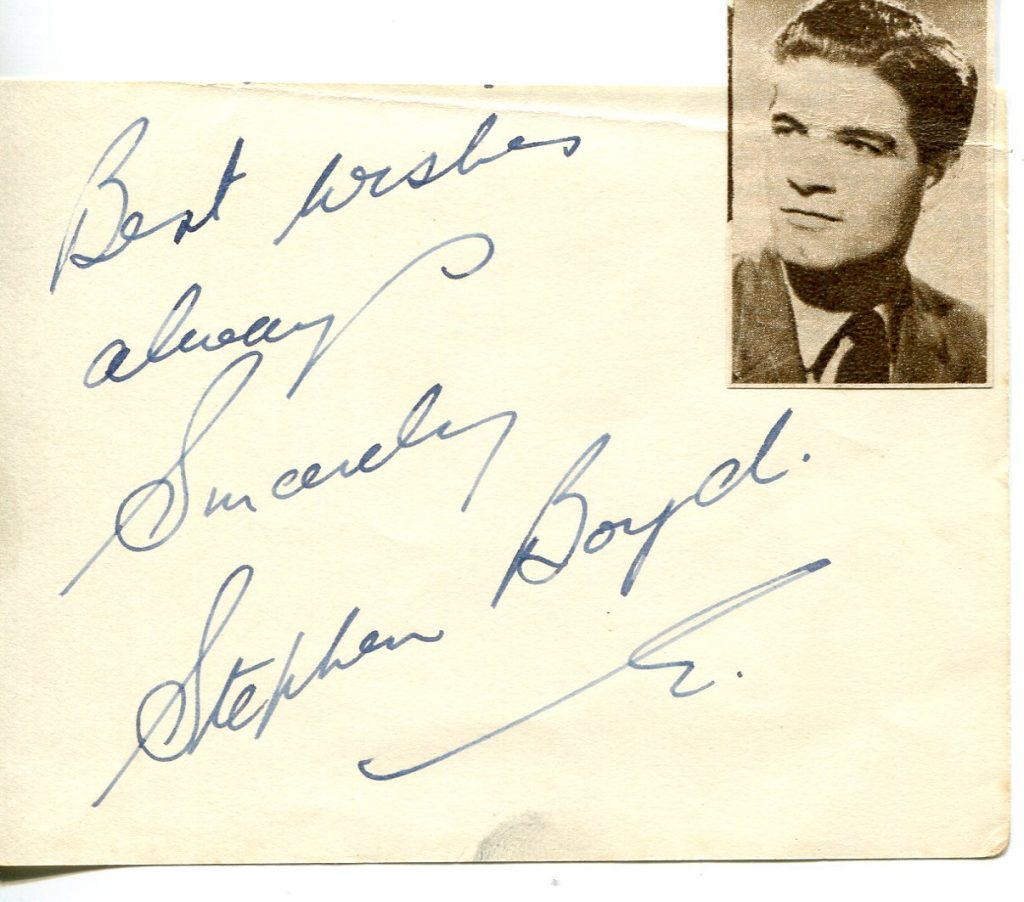 Best wishes
always
Sincerely
Stephen Boyd.